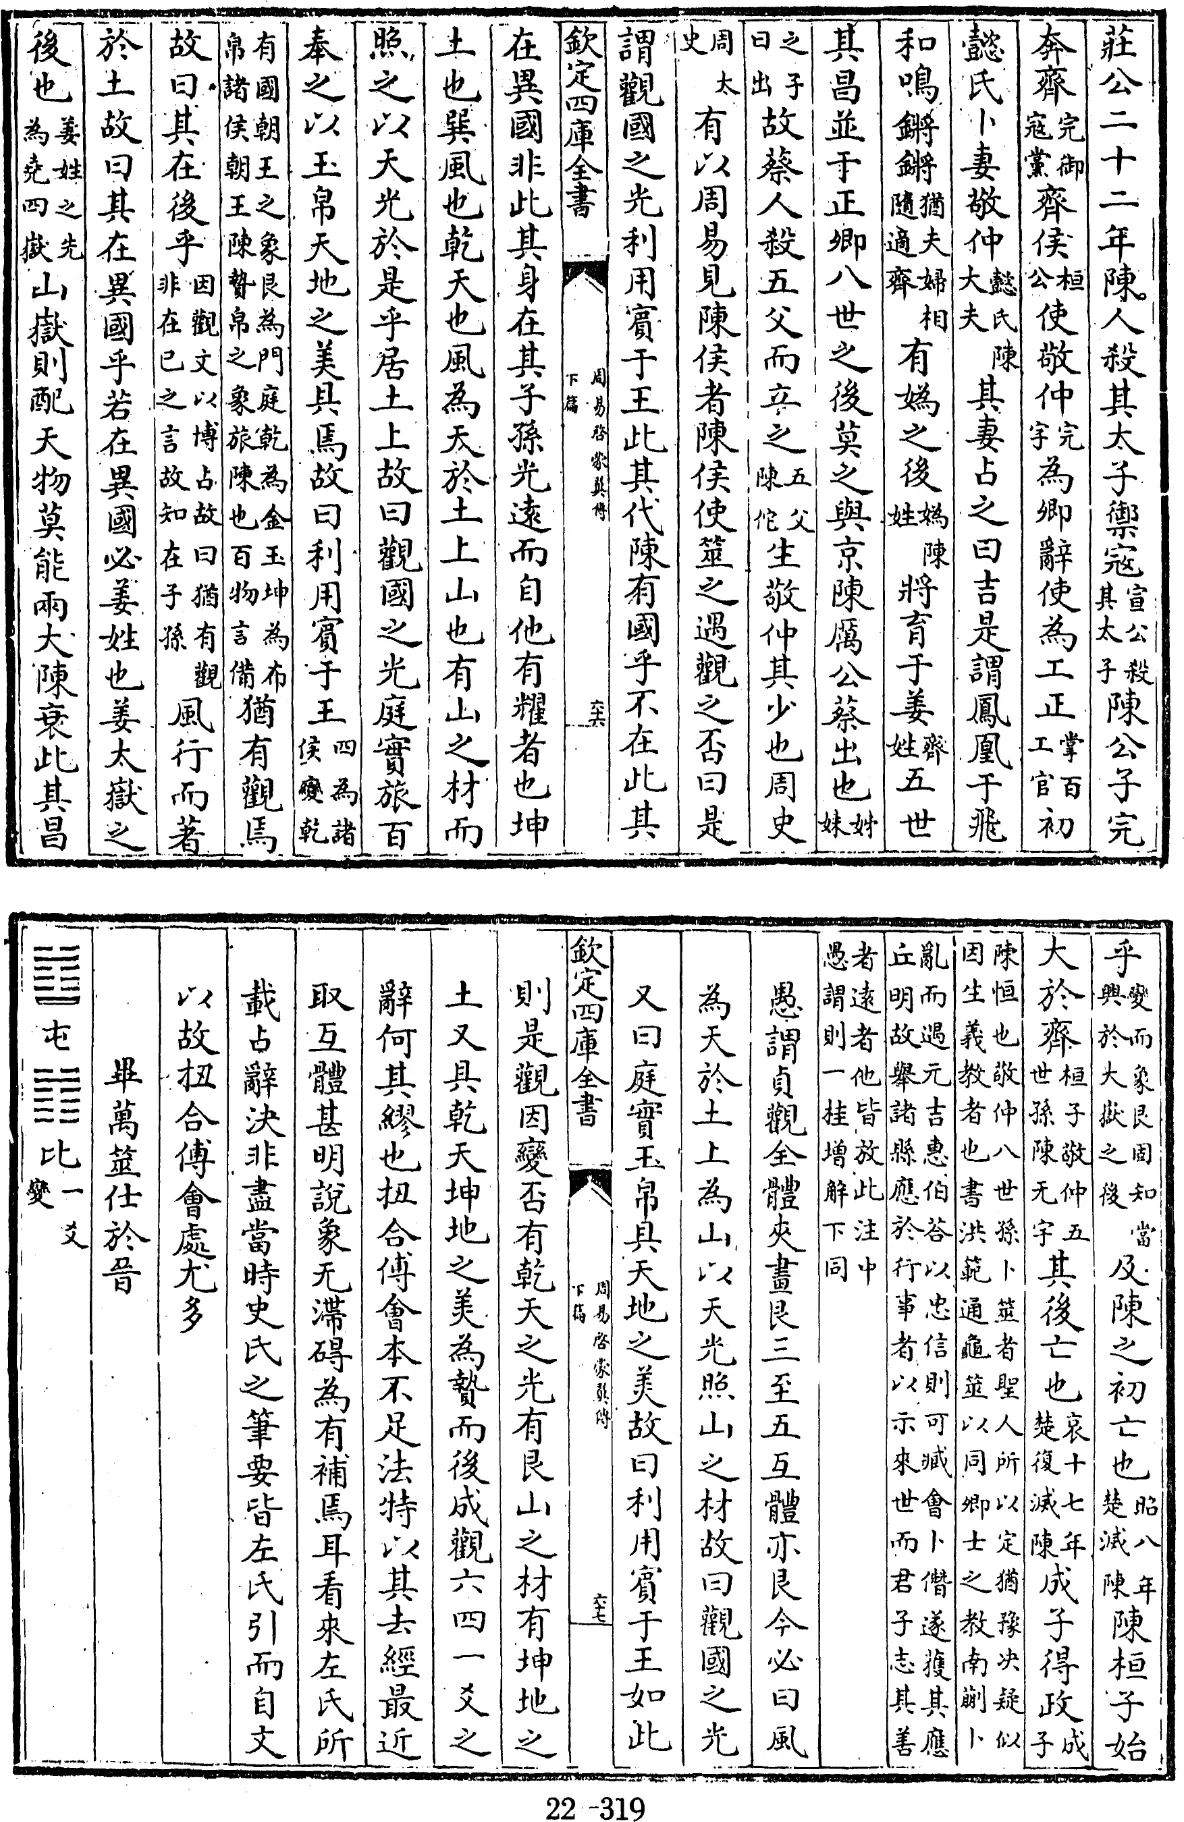 莊公二十二年陳人殺其太子禦寇宣公殺其太子陳公子完
奔齊完御寇黨齊侯桓公使敬仲完字為卿辭使為工正掌百工官初
懿氏卜妻敬仲懿氏陳大夫其妻占之曰吉是謂鳳凰于飛
和鳴鏘鏘猶夫婦相隨適齊有媯之後媯陳姓將育于姜齊姓五世
其昌並于正卿八世之後莫之與京陳厲公蔡出也姊妹
之子曰出故蔡人殺五父而立之五父陳佗生敬仲其少也周史
周太史有以周易見陳侯者陳侯使筮之遇觀之否曰是
謂觀國之光利用賓于王此其代陳有國乎不在此其
欽定四庫全書 周易啓蒙翼傳下篇 六十六
在異國非此其身在其子孫光遠而自他有耀者也坤
土也巽風也乾天也風為天於土上山也有山之材而
照之以天光於是乎居土上故曰觀國之光庭實旅百
奉之以玉帛天地之美具焉故曰利用賓于王四為諸侯變乾
有國朝王之象艮為門庭乾為金玉坤為布帛諸侯朝王陳贄帛之象旅陳也百物言備猶有觀焉
故曰其在後乎因觀文以博占故曰猶有觀非在已之言故知在子孫風行而著
於土故曰其在異國乎若在異國必姜姓也姜太嶽之
後也姜姓之先為堯四嶽山嶽則配天物莫能兩大陳衰此其昌
乎變而象艮固知當興於大嶽之後及陳之初亡也昭八年楚滅陳陳桓子始
大於齊桓子敬仲五世孫陳无宇其後亡也哀十七年楚復滅陳成子得政成子
陳恒也敬仲八世孫卜筮者聖人所以定猶豫决疑似因生義教者也書洪範通龜筮以同卿士之教南蒯卜
亂而遇元吉惠伯荅以忠信則可臧會卜僭遂獲其應丘明故舉諸縣應於行事者以示來世而君子志其善
者遠者他皆放此注中愚謂則一桂增解下同
愚謂貞觀全體夾畫艮三至五互體亦艮今必曰風
為天於土上為山以天光照山之材故曰觀國之光
又曰庭實玉帛具天地之美故曰利用賓于王如此
欽定四庫全書 周易啓蒙翼傳下篇 六十七
則是觀因變否有乾天之光有艮山之材有坤地之
土又具乾天坤地之美為贄而後成觀六四一爻之
辭何其繆也扭合傅會本不足法特以其去經最近
取互體甚明說象无滯碍為有補焉耳看來左氏所
載占辭決非盡當時史氏之筆要皆左氏引而自文
以故扭合傅會處尤多
畢萬筮仕於晉
䷂屯䷇比一爻變
22-319